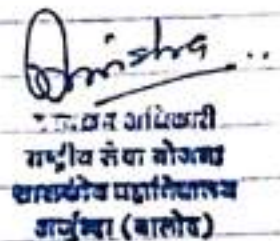 अधिकारी
राष्ट्रीय सेवा योजना
शासकीय महाविद्यालय
अर्जुन्दा (बालोद)